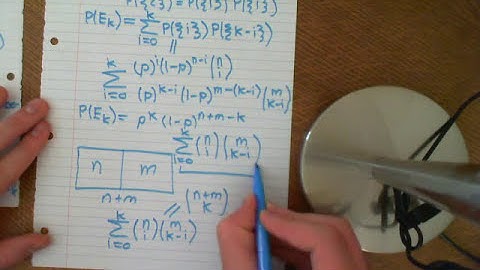 P({z}) = P({i}) P({j})
P(E_k) = ∑_{i=0}^{k} P({i}) P({k-i})
||
∑_{i=0}^{k} (p)^i (1-p)^{n-i} (n i)
(p)^{k-i} (1-p)^{m-(k-i)} (m k-i)
P(E_k) = p^k (1-p)^{n+m-k}
∑_{i=0}^{k} (n i) (m k-i)
n m
n+m
// (n+m k)
∑_{i=0}^{k} (n i) (m k-i)